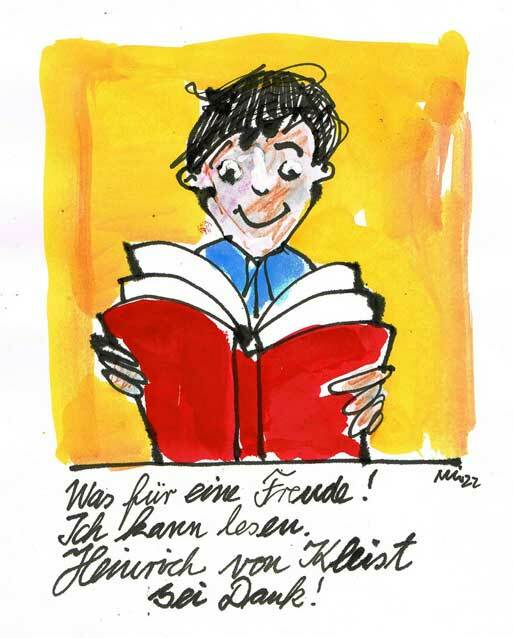 Was für eine Freude!
Ich kann lesen.
Heinrich von Kleist
sei Dank!